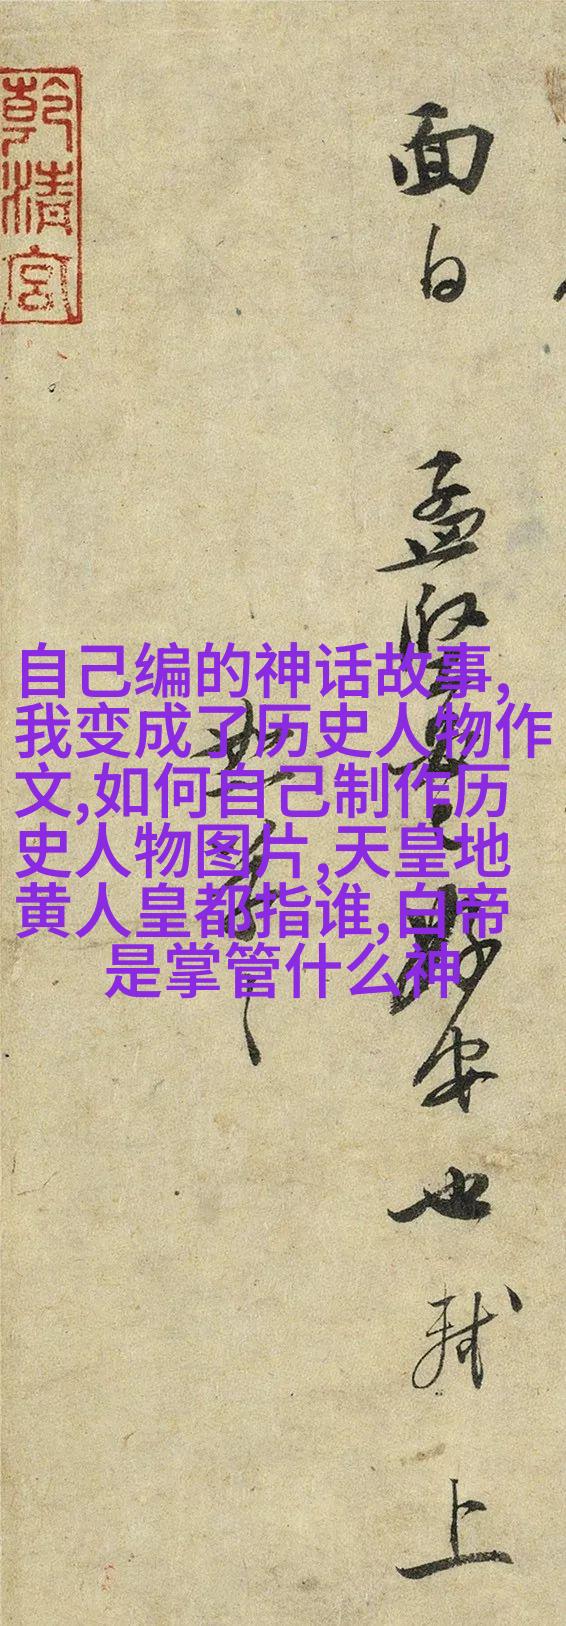 自己编的神话故事,
我变成了历史人物作
文,如何自己制作历
史人物图片,天皇地
黄人皇都指谁,白帝
是掌管什么神
面白 孟坚
安也轼上
乾清宫